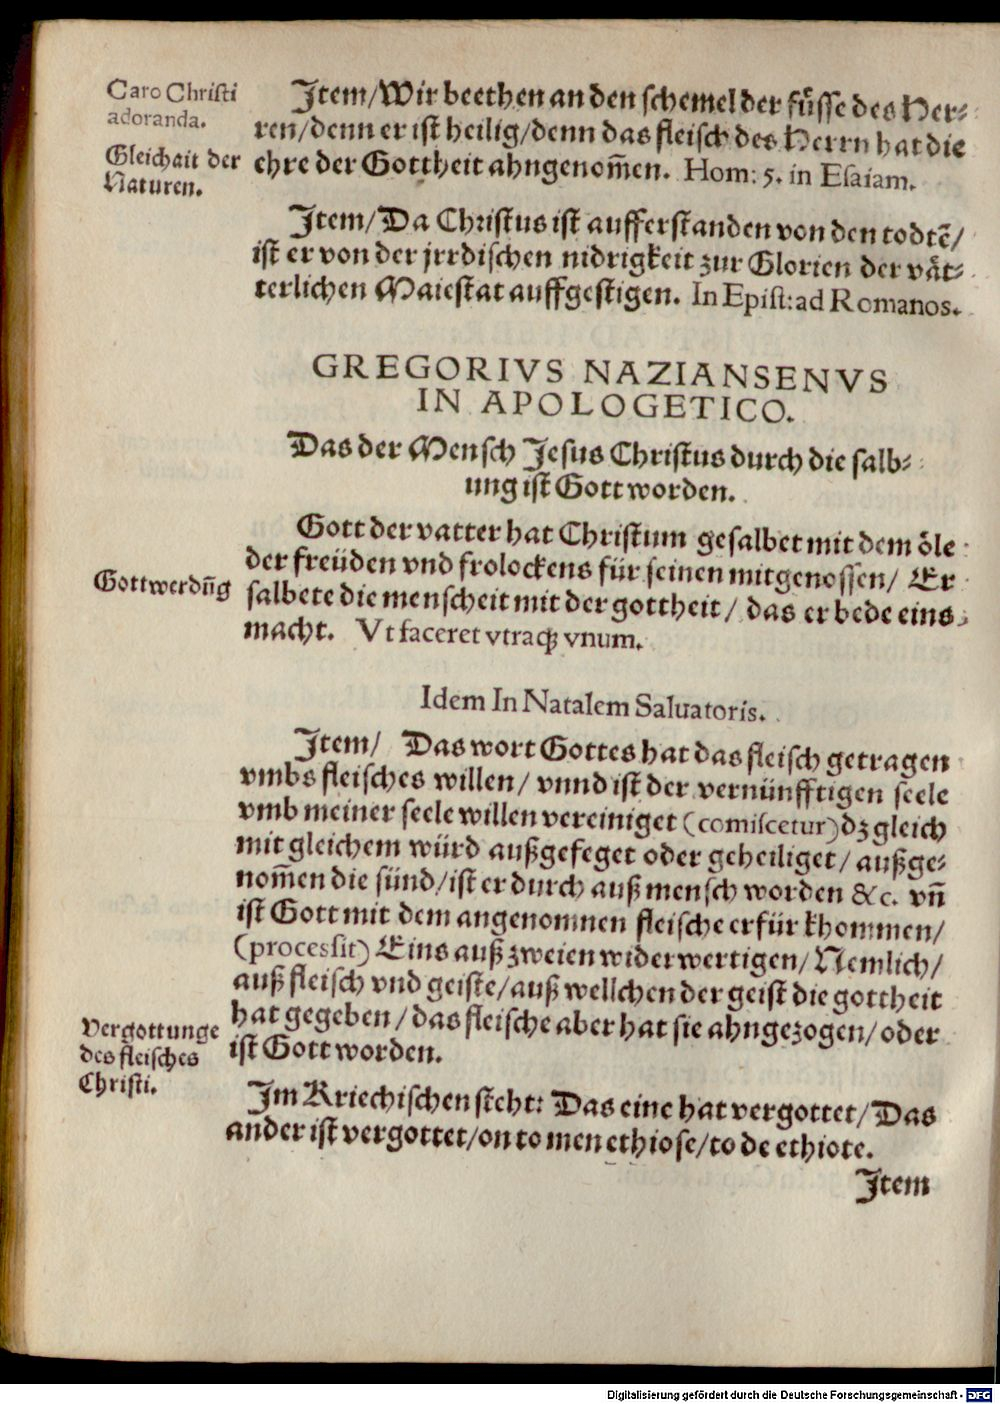 Caro Christi
adoranda.
Gleichait der
Naturen.
Item/Wir beethen an den schemel der fuͤsse des Her-
ren/denn er ist heilig/denn das fleisch des Herrn hat die
ehre der Gottheit ahngenom̃en. Hom: 5. in Esaiam.
Item/Da Christus ist aufferstanden von den todtẽ/
ist er von der jrrdischen nidrigkeit zur Glorien der vaͤt-
terlichen Maiestat auffgestigen. In Epist: ad Romanos.
GREGORIVS NAZIANSENVS
IN APOLOGETICO.
Das der Mensch Jesus Christus durch die salb-
ung ist Gott worden.
Gott der vatter hat Christum gesalbet mit dem oͤle
der freüden vnd frolockens für seinen mitgenossen/ Er
Gottwerdūg
salbete die menscheit mit der gottheit/ das er bede eins
macht. Vt faceret vtraq; vnum.
Idem In Natalem Saluatoris.
Item/ Das wort Gottes hat das fleisch getragen
vmbs fleisches willen/ vnnd ist der vernünfftigen seele
vmb meiner seele willen vereiniget (comiscetur) dz gleich
mit gleichem würd außgefeget oder geheiliget/ außge-
nom̃en die sünd/ist er durch auß mensch worden &c. vñ
ist Gott mit dem angenomnen fleische erfür khommen/
(processit) Eins auß zweien widerwertigen/ Nemlich/
auß fleisch vnd geiste/auß wellchen der geist die gottheit
hat gegeben/das fleische aber hat sie ahngezogen/oder
ist Gott worden.
Vergottunge
des fleisches
Christi.
Im Kriechischen steht: Das eine hat vergottet/Das
ander ist vergottet/on to men ethiose/to de ethiote.
Item
Digitalisierung gefördert durch die Deutsche Forschungsgemeinschaft - DFG